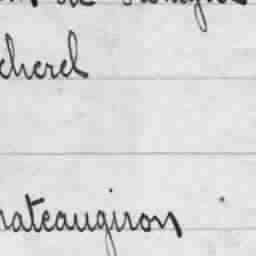 cherel
hateaugiron